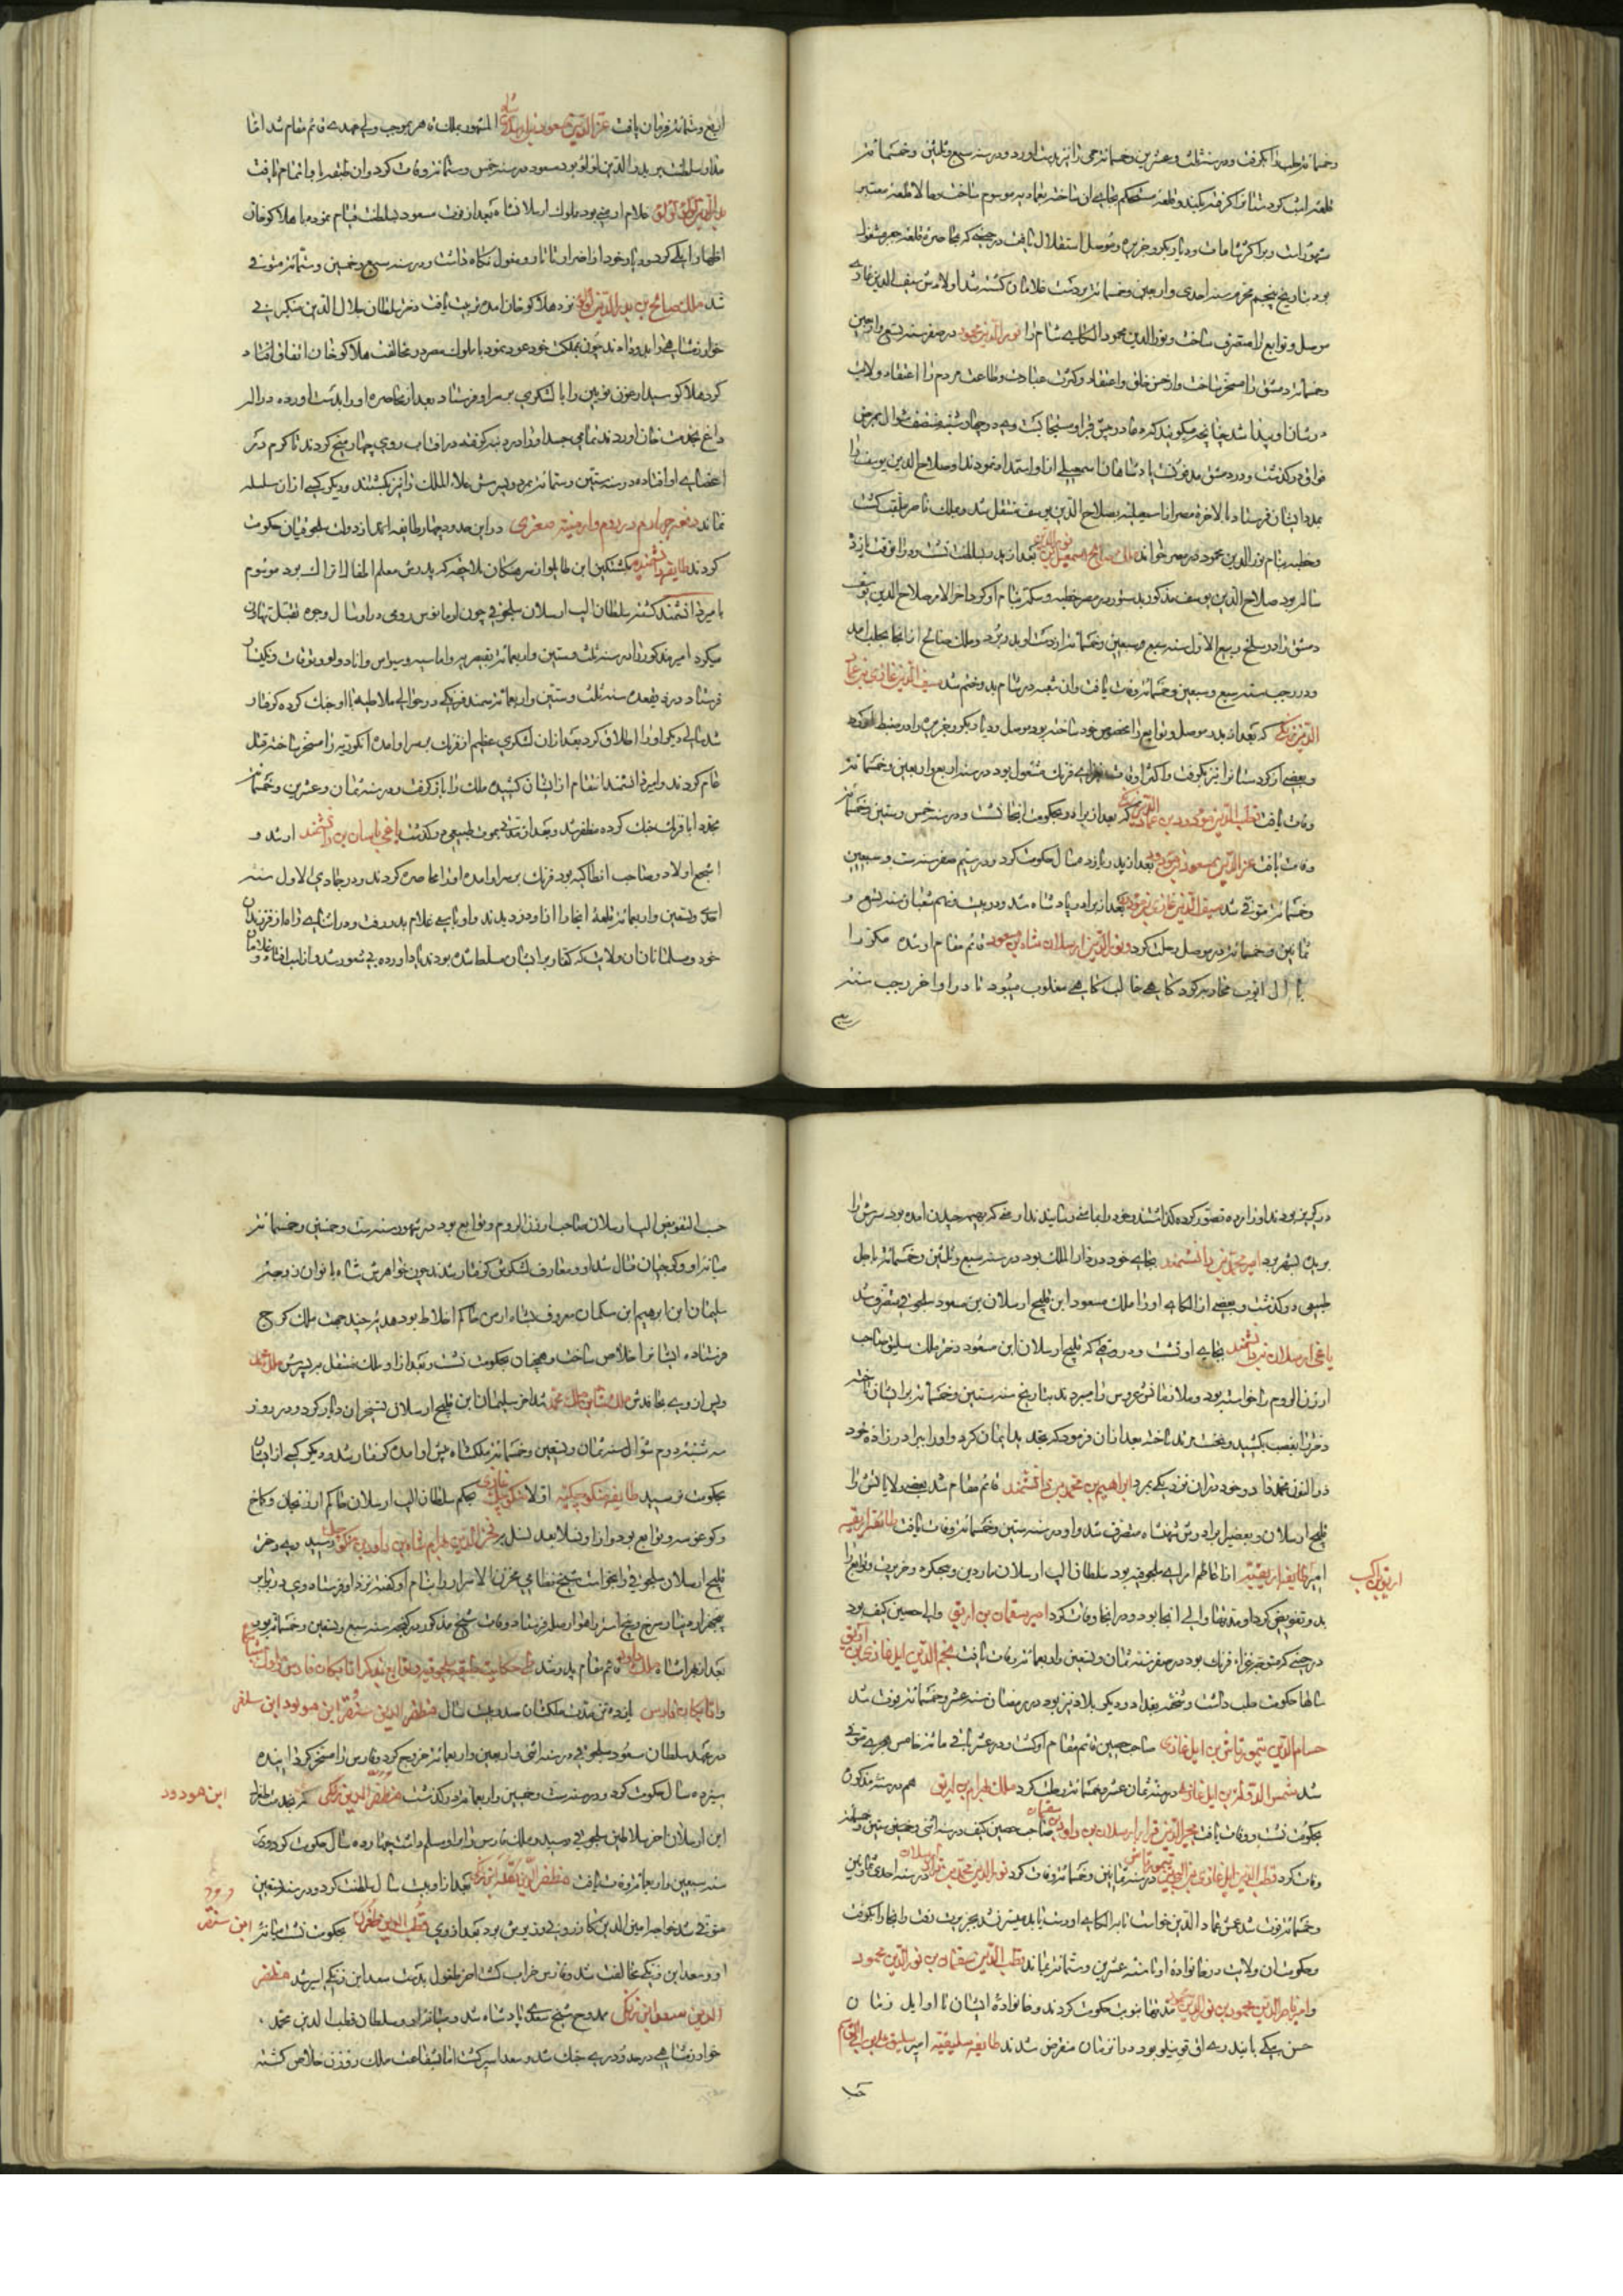 وخمسمائه حلب را بگرفت و در سنه ثلث و عشرین و خمسمائه حمی را نیز بدست آورد و در سنه سبع و ثلثین و خمسمائه
قلعه اشب کردستانرا گرفته بکند و قلعه مستحکم بجای آن ساخته بعمادیه موسوم ساخت و حالا قلعه معتبر
مشهور است و بر اکثر شامات و دیاربکر و جزیره و موصل استقلال یافت در حینی که بمحاصره قلعه جعبر مشغول
بود بتاریخ پنجم محرم سنه احدی و اربعین و خمسمائه بردست غلامان کشته شد اولادش سیف الدین غازی
موصل و توابع را متصرف ساخت و نورالدین محمود الکای شام را نورالدین محمود در صفر سنه تسع و اربعین
و خمسمائه دمشق را مسخر ساخت و از حسن خلق و اعتقاد و کثرت عبادت و طاعت مردم را اعتقاد ولایت
در شان او پیدا شد چنانچه میگویند که دعا در سر قبر او مستجابست وی در چهارشنبه منتصف شوال بمرض
خناق درگذشت و در دمشق مدفون گشت پادشاهان اسمعیلی از او استمداد نمودند او صلاح الدین یوسف را
بمدد ایشان فرستاد بالاخره مصر از اسمعیلیه بصلاح الدین یوسف منتقل شد و ملک ناصر ملقب گشت
و خطبه بنام نورالدین محمود در مصر خواند ملک صالح اسمعیل بن نورالدین بعد از پدر بسلطنت نشست و در آنوقت یازده
ساله بود صلاح الدین یوسف مذکور بدستور در مصر خطبه و سکه بنام او کرد آخر الامر صلاح الدین یوسف
دمشق را در سلخ ربیع الاول سنه سبع و سبعین و خمسمائه از دست او بدر برد و ملک صالح از آنجا بحلب آمد
و در رجب سنه سبع و سبعین و خمسمائه وفات یافت و آن شعبه در شام بدو ختم شد سیف الدین غازی بن عماد
الدین زنگی که بعد از پدر موصل و توابع را مخصوص خود ساخته بود موصل و دیاربکر و جزیره را در ضبط آورد
و بعضی از کردستانرا نیز بگرفت و اکثر اوقات بغزای فرنگ مشغول بود در سنه اربع و اربعین و خمسمائه
وفات یافت قطب الدین مودود بن عماد الدین زنگی که بعد از برادر بحکومت آنجا نشست و در سنه خمس و ستین و خمسمائه
وفات یافت عزالدین مسعود بن مودود بعد از پدر یازده سال حکومت کرد و در سیم صفر سنه ست و سبعین
و خمسمائه متوفی شد سیف الدین غازی بن مودود بعد از برادر پادشاه شد و در بیست و نهم شعبان سنه تسع و
ثمانین و خمسمائه در موصل رحلت کرد و نورالدین ارسلان شاه بن مسعود قائم مقام او شده مکررا
با آل ایوب محاربه کرد گاهی غالب گاهی مغلوب میبود تا در اواخر رجب سنه
سبع
اربع و ستمائه فرمان یافت عزالدین مسعود بن ارسلان شاه المشهور بملک قاهر بموجب ولی عهدی قائم مقام شد اما
مدار سلطنت بر بدرالدین لولو بود مسعود در سنه خمس و ستمائه وفات کرد و آن طبقه باو اتمام یافت
بدرالدین لولو غلام ارمنی بود مملوک ارسلان شاه بعد از فوت مسعود بسلطنت قیام نموده با هلاکو خان
اظهار ایلی کرد و دیار خود را از ضرر تاتار و مغول نگاه داشت و در سنه سبع و خمسین و ستمائه متوفی
شد ملک صالح بن بدرالدین لولو نزد هلاکو خان آمده تربیت یافت دختر سلطان جلال الدین منکبرنی
خوارزمشاهی را بدو دادند چون بمملکت خود عود نمود با ملوک مصر در مخالفت هلاکو خان اتفاق افتاد
کرد هلاکو سیدارغون نویین را با لشکری بر سر او فرستاد بعد از محاصره او را بدست آورده در اله
داغ بخدمت خان آوردند تمامی جسد او را در دنبه گرفته در آفتاب روی چهار میخ کردند تا کرم در
اعضای او افتاده در سنه ستین و ستمائه بمرد و پسرش علاء الملک را نیز بکشتند و دیگر کسی از آن سلسله
نماند دفعه چهارم در روم و ارمنیه صغری در این حدود چهار طایفه از امرای دولت سلجوقیان حکومت
کردند طایفه دانشمندیه کمشتکین ابن طایلو از مرهسکان بلاجقه که پدرش معلم اطفال اتراک بود موسوم
بامیر دانشمند گشته سلطان الب ارسلان سلجوقی چون ارمانوس رومی در ارسال وجوه تقبل تهاون
میکرد امیر مذکور را در سنه ثلث و ستین و اربعمائه بقیصریه و اماسیه و سیواس و انادولو و توقات و نیکسار
فرستاد در ذیقعده سنه ثلث و ستین و اربعمائه سمند فرنگی در حوالی ملاطیه با او جنک کرده گرفتار
شد سالی دیگر او را اطلاق کرد بعد از آن لشکری عظیم از فرنگ بر سر او آمده انکوریه را مسخر ساخته قتل
عام کردند و امیر دانشمند انتقام از ایشان کشیده ملک را باز گرفت و در سنه ثمان و عشرین و خمسمائه
مجددا با فرنگ جنک کرده مظفر شد و بعد از مدتی بموت طبیعی درگذشت یاغی باسان بن دانشمند ارشد و
اشجع اولاد و صاحب انطاکیه بود فرنگ بر سر او آمده او را محاصره کردند و در جمادی الاول سنه
احدی و تسعین و اربعمائه قلعه آنجا را از او دزدیدند و او با سی غلام بدر رفت و در اثنای راه از فرزندان
خود و مسلمانان آن ولایت که کفار بر ایشان مسلط شده بودند یاد آورده بی شعور شد و از اسب افتاد و غلامان
در گریز بودند او را مرده تصور کرده گذاشتند و خود را بجائی رسانیدند ارمنی که بهیمه چیدن آمده بود سرش را
بریده بشهر برد امیر محمد بن دانشمند بجای خود در دارالملک بود در سنه سبع و ثلثین و خمسمائه باجل
طبیعی درگذشت و بعضی از الکای او را ملک مسعود ابن قلیج ارسلان بن مسعود سلجوقی متصرف شد
یاغی ارسلان بن دانشمند بجای او نشست و در وقتی که قلیج ارسلان ابن مسعود دختر ملک سلیق صاحب
ارزن الروم را خواسته بود و ملازمانش عروس را میبردند بتاریخ سنه ستین و خمسمائه بر ایشان تاخته
دختر را بغصب بکشید و بخت برند ساخته بعد از آن فرمود که مجدد بدایمان کرد و او را ببرادر زاده خود
ذوالنون محمد داد و خود در آن نزدیکی بمرد ابراهیم بن محمد بن دانشمند قائم مقام شد بعضی ولایاتش را
قلیج ارسلان و بعضی را برادرش شهنشاه متصرف شد و او در سنه ستین و خمسمائه وفات یافت طایفه ارتقیه
امیر طایفه ارتقیه از اعاظم امرای سلجوقیه بود سلطان الب ارسلان ماردین و حصنکیف و خرپرت و توابع را
ارتق بن اکسب
بدو تفویض کرد او مدتها والی آنجا بود و در آنجا وفات کرد امیر سقمان بن ارتق والی حصین کیف بود
در حینی که متوجه غزاء فرنگ بود در صفر سنه ثمان و تسعین و اربعمائه وفات یافت نجم الدین ایل غازی بن ارتق
سالها حکومت حلب داشت و شحنه بغداد و دیگر بلاد نیز بود در رمضان سنه عشر و خمسمائه فوت شد
حسام الدین تیمورتاش بن ایل غازی صاحب حصین قائم مقام او گشت و در عشر ثانی مائه خامس هجری متوفی
شد شمس الدوله بن ایل غازی در سنه ثمان عشر و خمسمائه رحلت کرد ملک بهرام بن ارتق هم در سنه مذکور
بحکومت نشست و وفات یافت فخرالدین قرا ارسلان بن داود بن سقمان صاحب حصین کیف در سنه اثنی و خمسین و ستین و خمسمائه
وفات کرد قطب الدین ایل غازی بن البی بن تیمورتاش در سنه ثمانین و خمسمائه وفات کرد نورالدین محمد بن قرا ارسلان در سنه احدی و ثمانین
و خمسمائه فوت شد عمش عماد الدین خواست تا بر الکای او دست یابد میسر نشد بخرپرت رفت و آنجا را بگرفت
و حکومت آن ولایت در خانواده او تا سنه عشرین و ستمائه بماند قطب الدین سقمان بن نورالدین محمود
و امیر ناصرالدین محمود بن نورالدین محمد مدتها بنوبت حکومت کردند و خانواده ایشان تا اوایل زمان
حسن بیک بایندری اق قوینلو بود در آن زمان منقرض شدند طایفه سلیقیه امیر سلیق علی بن ابی القاسم
حسب
حسب التفویض الب ارسلان صاحب ارزن الروم و توابع بود در شهور سنه ست و خمسین و خمسمائه
میانه او و گرجیان قتال شد او و معارف لشکرش گرفتار شدند چون خواهرش شاه بانوان زوجه
سلیمان ابن ابراهیم ابن سکمان معروف بشاه ارمن حاکم اخلاط بود هدیه چند جهت ملک گرج
فرستاده ایشانرا خلاص ساخت و همچنان بحکومت نشست و بعد از او ملک منتقل بر پسرش ملک محمد
و پس از وی بخاندش ملکشاه بن ملک محمد شد آخر سلیمان ابن قلیج ارسلان تسخیر آن دیار کرد و در روز
سه شنبه دوم شوال سنه ثمان و تسعین و خمسمائه ملکشاه پیش او آمده گرفتار شد و دیگر کسی از ایشان
بحکومت نرسید طایفه منکوجکیه اولا منکوجک غازی بحکم سلطان الب ارسلان حاکم ارزنجان و کماخ
و کوغونیه و توابع بود و از او نسلا بعد نسل بر فخرالدین بهرام شاه بن داود بن منکوجک رسید وی دختر
قلیج ارسلان سلجوقی را بخواست شیخ نظامی مخزن الاسرار را بنام او گفته نزد او فرستاد وی در برابر
پنجهزار دینار سرخ و پنج استر راهوار صله فرستاد وفات شیخ مذکور در گنجه سنه سبع و تسعین و خمسمائه بود
بعد از بهرامشاه ملک داود قائم مقام پدر شد
و اتابکان فارس یازده تن مدت ملکشان صد و بیست سال مظفرالدین سنقر ابن مودود ابن سلغر
در عهد سلطان مسعود سلجوقی در سنه اثنی و اربعین و اربعمائه خروج کرد و فارس را مسخر کرد آینده
سیزده سال حکومت کرد و در سنه ست و خمسین و اربعمائه درگذشت مظفرالدین زنگی که بخدمت طغرل
ابن مودود
ابن ارسلان آخر سلاطین سلجوقی رسید و ملک فارس را بر او مسلم داشت چهارده سال حکومت کرد و در
سنه سبعین و اربعمائه وفات یافت مظفرالدین تکله بن زنگی بعد از او بیست سال سلطنت کرد و در سنه تسعین
متوفی شد خواجه امین الدین کازرونی وزیرش بود بعد از وی قطب الدین طغرل بحکومت نشست میانه
ابن سنقر
او و سعد ابن زنگی مخالفت شد و فارس خراب گشت آخر طغرل بدست سعد ابن زنگی اسیر شد مظفر
الدین سعد ابن زنگی ممدوح شیخ سعدی پادشاه شد و میانه او و سلطان قطب الدین محمد
خوارزمشاهی در حدود ری جنگ شد و سعد اسیر گشت اما بشفاعت ملک زوزن خلاص گشته